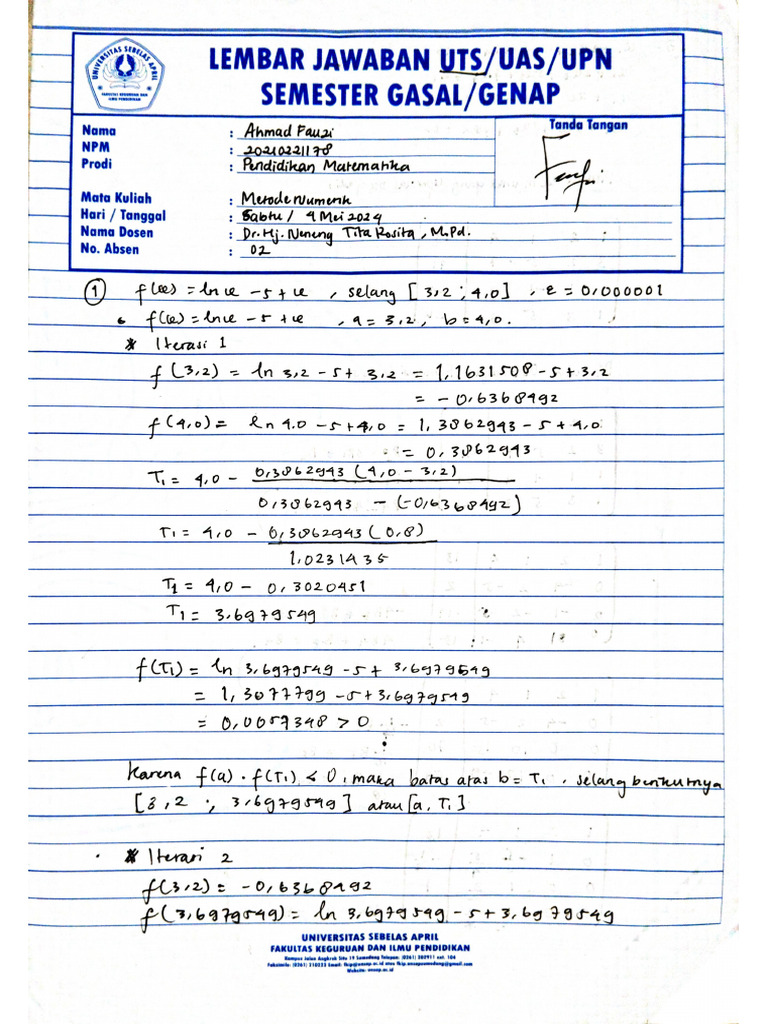 UNIVERSITAS SEBELAS APRIL
FAKULTAS KEGURUAN DAN
ILMU PENDIDIKAN
LEMBAR JAWABAN UTS/UAS/UPN
SEMESTER GASAL/GENAP
Nama : Ahmad Fauzi
Tanda Tangan
NPM : 20210221178
Prodi : Pendidikan Matematika
Mata Kuliah : Metode Numerik
Hari / Tanggal : Sabtu / 4 Mei 2024
Nama Dosen : Dr. Hj. Neneng Tita Rosita, M.Pd.
No. Absen : 02
① f(x) = ln x - 5 + x , selang [3,2 ; 4,0] , ε = 0,000001
• f(x) = ln x - 5 + x , a = 3,2 , b = 4,0.
* Iterasi 1
f(3,2) = ln 3,2 - 5 + 3,2 = 1,1631508 - 5 + 3,2
= -0,6368492
f(4,0) = ln 4,0 - 5 + 4,0 = 1,3862943 - 5 + 4,0
= 0,3862943
T1 = 4,0 - 0,3862943 (4,0 - 3,2)
0,3862943 - (-0,6368492)
T1 = 4,0 - 0,3862943 (0,8)
1,0231435
T1 = 4,0 - 0,3020451
T1 = 3,6979549
f(T1) = ln 3,6979549 - 5 + 3,6979549
= 1,3077799 - 5 + 3,6979549
= 0,0057348 > 0
Karena f(a) . f(T1) < 0, maka batas atas b = T1 , selang berikutnya
[3,2 ; 3,6979549] atau [a, T1]
* Iterasi 2
f(3,2) = -0,6368492
f(3,6979549) = ln 3,6979549 - 5 + 3,6979549
UNIVERSITAS SEBELAS APRIL
FAKULTAS KEGURUAN DAN ILMU PENDIDIKAN
Kampus Jalan Angkrek Situ 19 Sumedang Telepon: (0261) 202911 ext. 104
Faksimile: (0261) 210223 Email: fkip@unsap.ac.id atau fkip.unsapsumedang@gmail.com
Website: unsap.ac.id